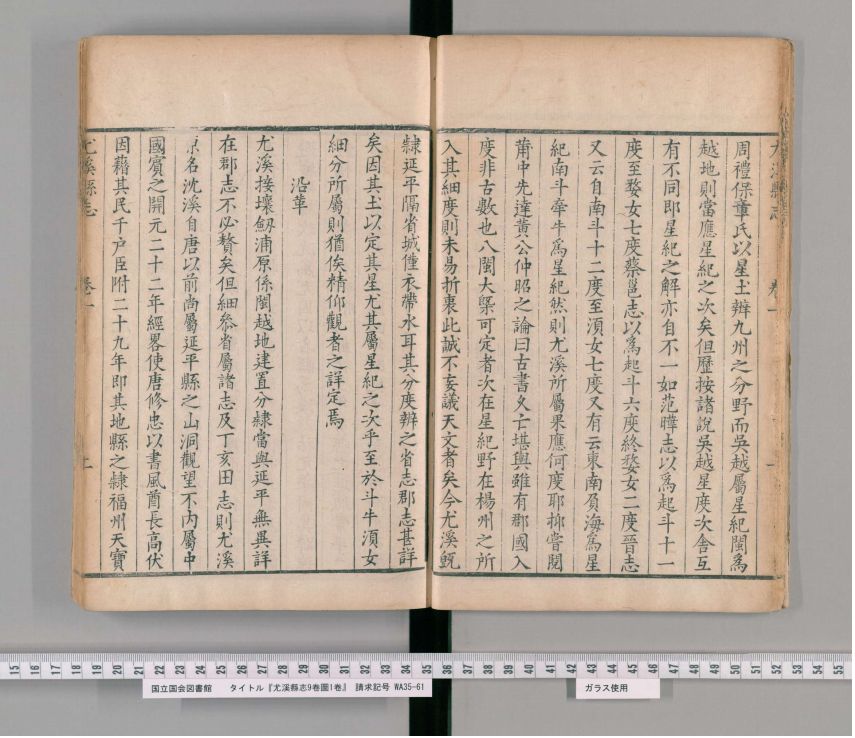 尤溪縣志 卷一 一
周禮保章氏以星土辨九州之分野而吳越屬星紀閩爲
越地則當應星紀之次矣但歷按諸說吳越星度次舍互
有不同即星紀之解亦自不一如范曄志以爲起斗十一
度至婺女七度蔡邕志以爲起斗六度終婺女二度晉志
又云自南斗十二度至湏女七度又有云東南負海爲星
紀南斗牽牛爲星紀然則尤溪所屬果應何度耶抑嘗閱
莆中先達黃公仲昭之論曰古書久亡堪輿雖有郡國入
度非古數也八閩大槩可定者次在星紀野在楊州之所
入其細度則未易折衷此誠不妄議天文者矣今尤溪旣
隸延平隔省城僅衣帶水耳其分度辨之省志郡志甚詳
矣因其土以定其星尤其屬星紀之次乎至於斗牛湏女
細分所屬則猶俟精仰觀者之詳定焉
沿革
尤溪接壤劔浦原係閩越地建置分隸當與延平無異詳
在郡志不必贅矣但細叅省屬諸志及丁亥田志則尤溪
名沈溪自唐以前尚屬延平縣之山洞觀望不内屬中
國賓之開元二十二年經畧使唐修忠以書風酋長高伏
因藉其民千户臣附二十九年即其地縣之隸福州天寶
尤溪縣志 卷一